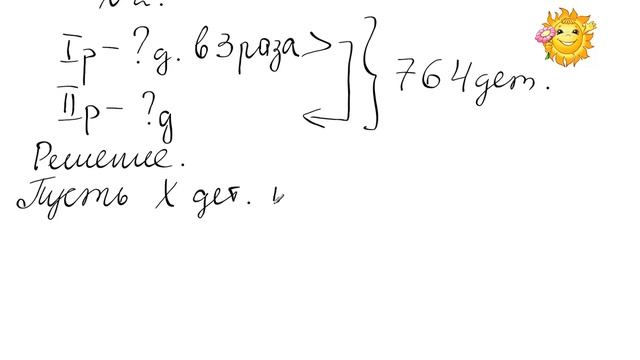 №2.
Iр – ?д. в 3 раза > } 764 дет.
IIр – ?д
Решение.
Пусть X дет.